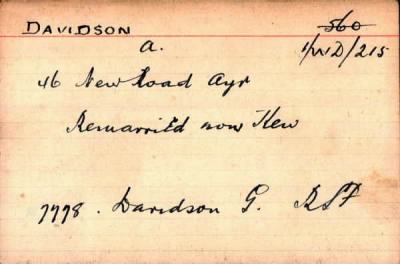 DAVIDSON 560
A. 1/WD/215
46 New Road Ayr
Remarried now Kew
7778. Davidson G. RSF